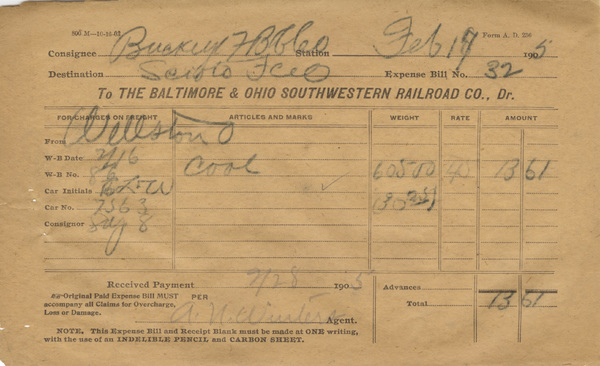 800 M—10-25-03 Form A. D. 236
Consignee Buckeye F B Co Station Feb 17 1905
Destination Scioto Fce O Expense Bill No. 32
To THE BALTIMORE & OHIO SOUTHWESTERN RAILROAD CO., Dr.
FOR CHARGES ON FREIGHT ARTICLES AND MARKS WEIGHT RATE AMOUNT
From Wellston O
W-B Date 2/16
W-B No. Coal 60500 45 13 61
Car Initials
Car No. 7563
Consignor
Received Payment 2/28 1905 Advances
Original Paid Expense Bill MUST PER
accompany all Claims for Overcharge, Total 13 61
Loss or Damage. Agent.
NOTE, This Expense Bill and Receipt Blank must be made at ONE writing,
with the use of an INDELIBLE PENCIL and CARBON SHEET.